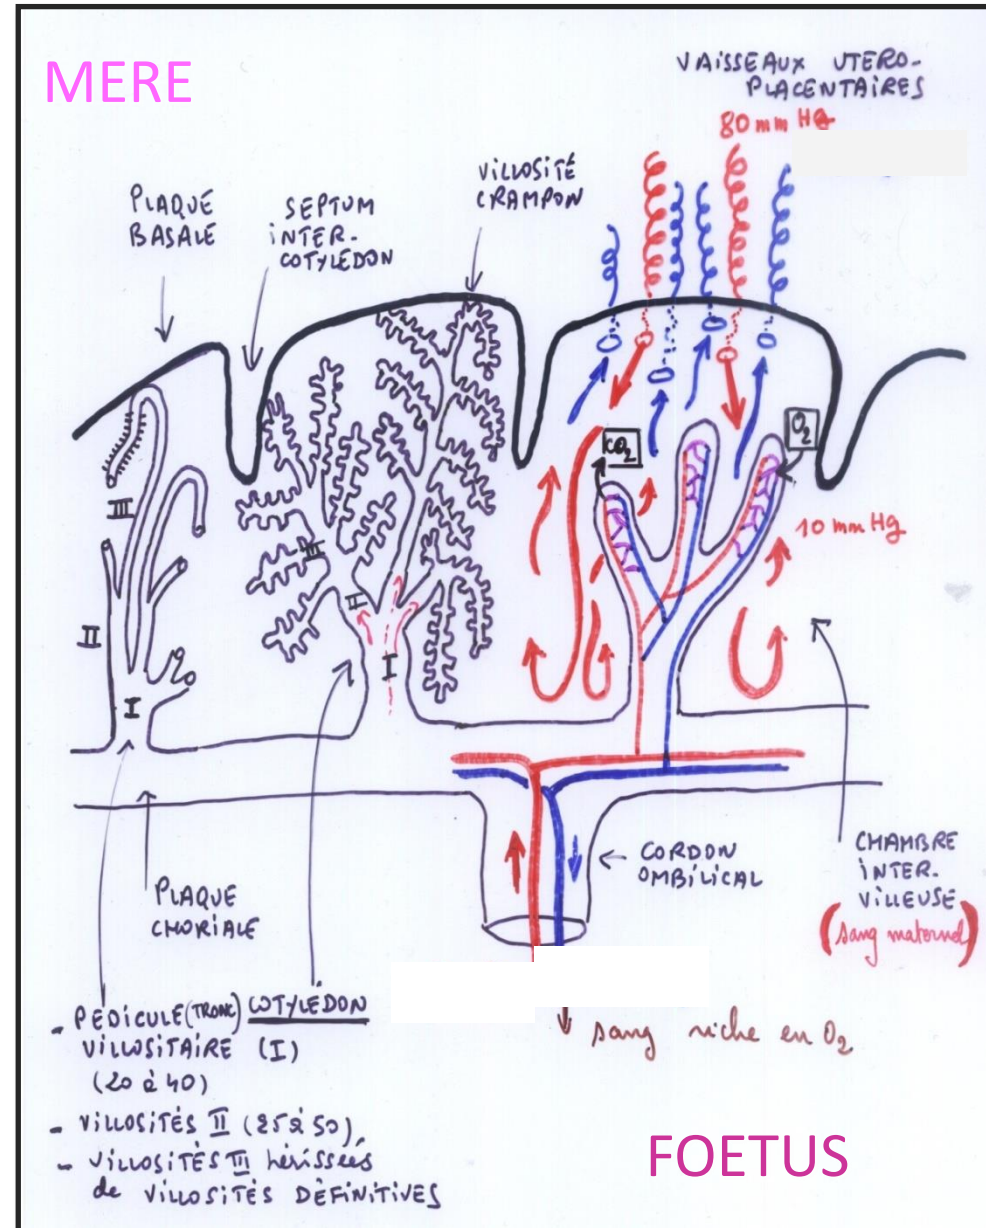 MERE
VAISSEAUX UTERO-
PLACENTAIRES
80 mm Hg
PLAQUE
BASALE
SEPTUM
INTER-
COTYLEDON
VILLOSITÉ
CRAMPON
CO2
O2
10 mm Hg
III
II
I
III
II
I
PLAQUE
CHORIALE
CORDON
OMBILICAL
CHAMBRE
INTER-
VILLEUSE
(sang maternel)
- PEDICULE (TRONC) COTYLÉDON
VILLOSITAIRE (I)
(20 à 40)
- VILLOSITÉS II (25 à 50),
- VILLOSITÉS III hérissées
de VILLOSITÉS DÉFINITIVES
sang riche en O2
FOETUS